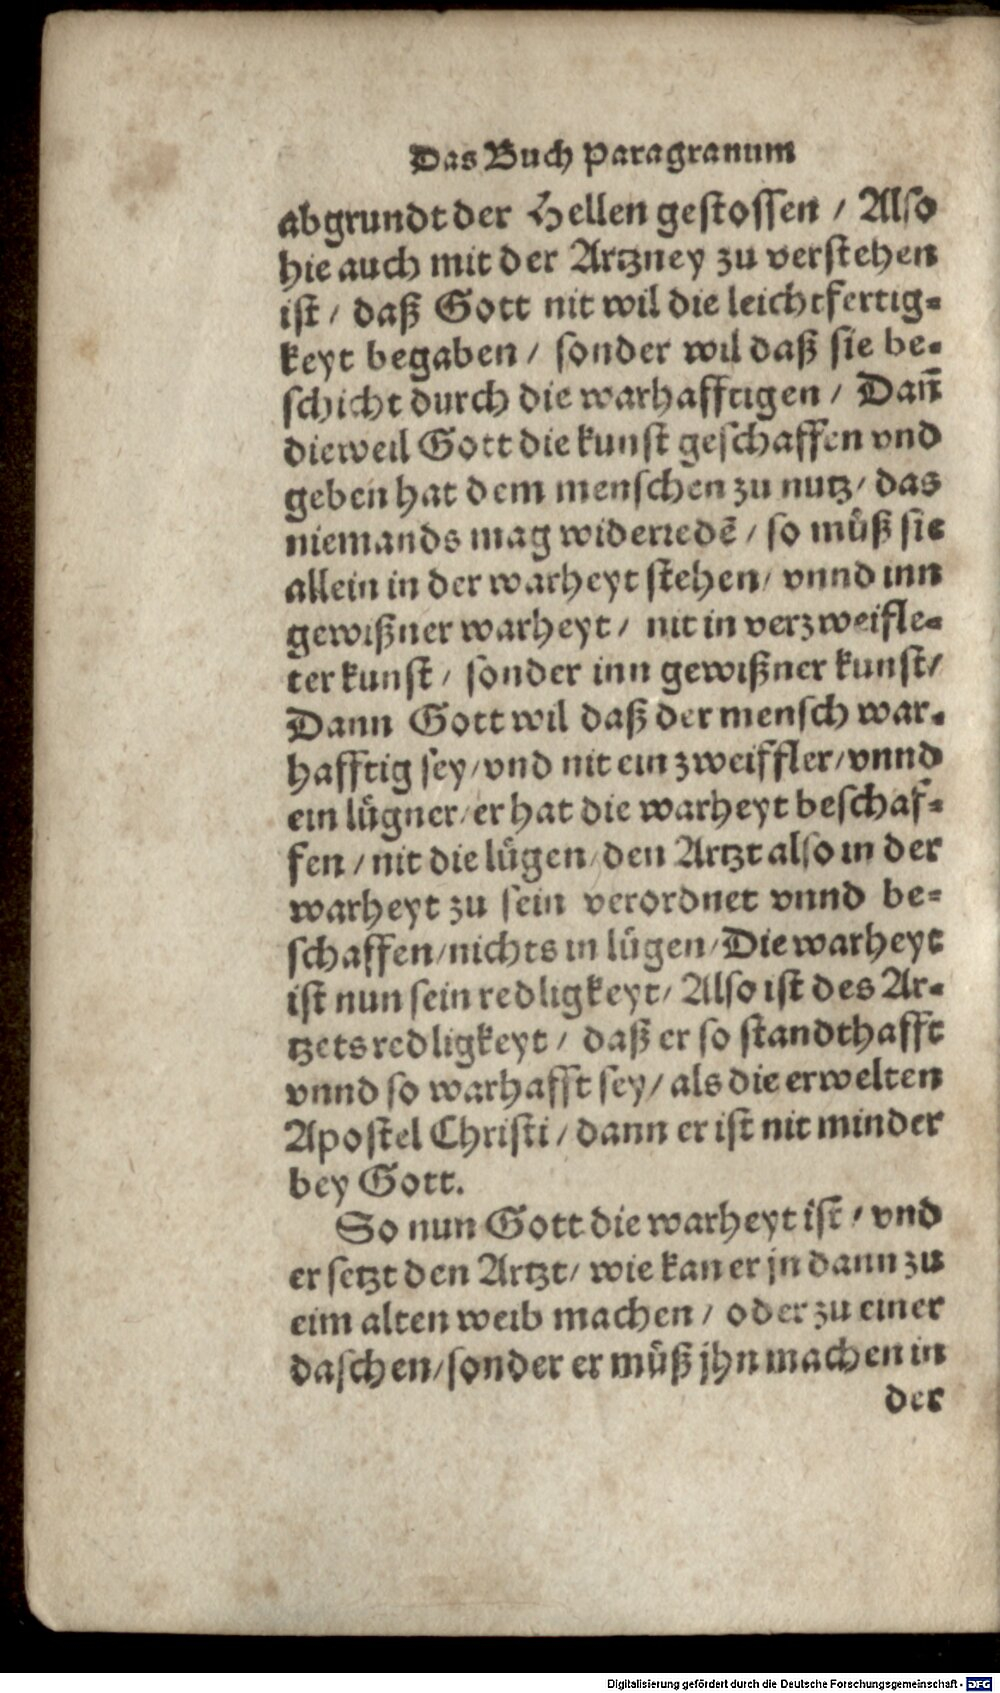 Das Buch Paragranum
abgrundt der Hellen gestossen / Also
hie auch mit der Artzney zu verstehen
ist / daß Gott nit wil die leichtfertig=
keyt begaben / sonder wil daß sie be=
schicht durch die warhafftigen / Dañ
dieweil Gott die kunst geschaffen vnd
geben hat dem menschen zu nutz / das
niemands mag widerredē / so můß sie
allein in der warheyt stehen / vnnd inn
gewißner warheyt / nit in verzweifle=
ter kunst / sonder inn gewißner kunst /
Dann Gott wil daß der mensch war=
hafftig sey / vnd nit ein zweiffler / vnnd
ein lügner / er hat die warheyt beschaf=
fen / nit die lügen / den Artzt also in der
warheyt zu sein verordnet vnnd be=
schaffen / nichts in lügen / Die warheyt
ist nun sein redligkeyt / Also ist des Ar=
tzets redligkeyt / daß er so standthafft
vnnd so warhafft sey / als die erwelten
Apostel Christi / dann er ist nit minder
bey Gott.
So nun Gott die warheyt ist / vnd
er setzt den Artzt / wie kan er jn dann zu
eim alten weib machen / oder zu einer
daschen / sonder er můß jhn machen in
der
Digitalisierung gefördert durch die Deutsche Forschungsgemeinschaft - DFG